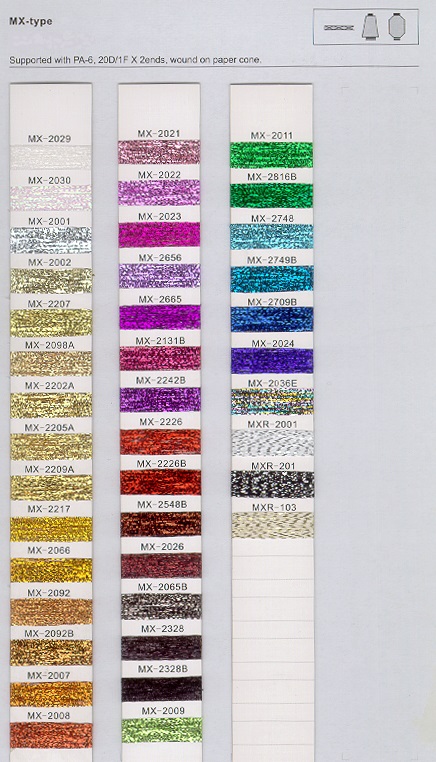 MX-type
Supported with PA-6, 20D/1F X 2ends, wound on paper cone.
MX-2029
MX-2030
MX-2001
MX-2002
MX-2207
MX-2098A
MX-2202A
MX-2205A
MX-2209A
MX-2217
MX-2066
MX-2092
MX-2092B
MX-2007
MX-2008
MX-2021
MX-2022
MX-2023
MX-2656
MX-2665
MX-2131B
MX-2242B
MX-2226
MX-2226B
MX-2548B
MX-2026
MX-2065B
MX-2328
MX-2328B
MX-2009
MX-2011
MX-2816B
MX-2748
MX-2749B
MX-2709B
MX-2024
MX-2036E
MXR-2001
MXR-201
MXR-103